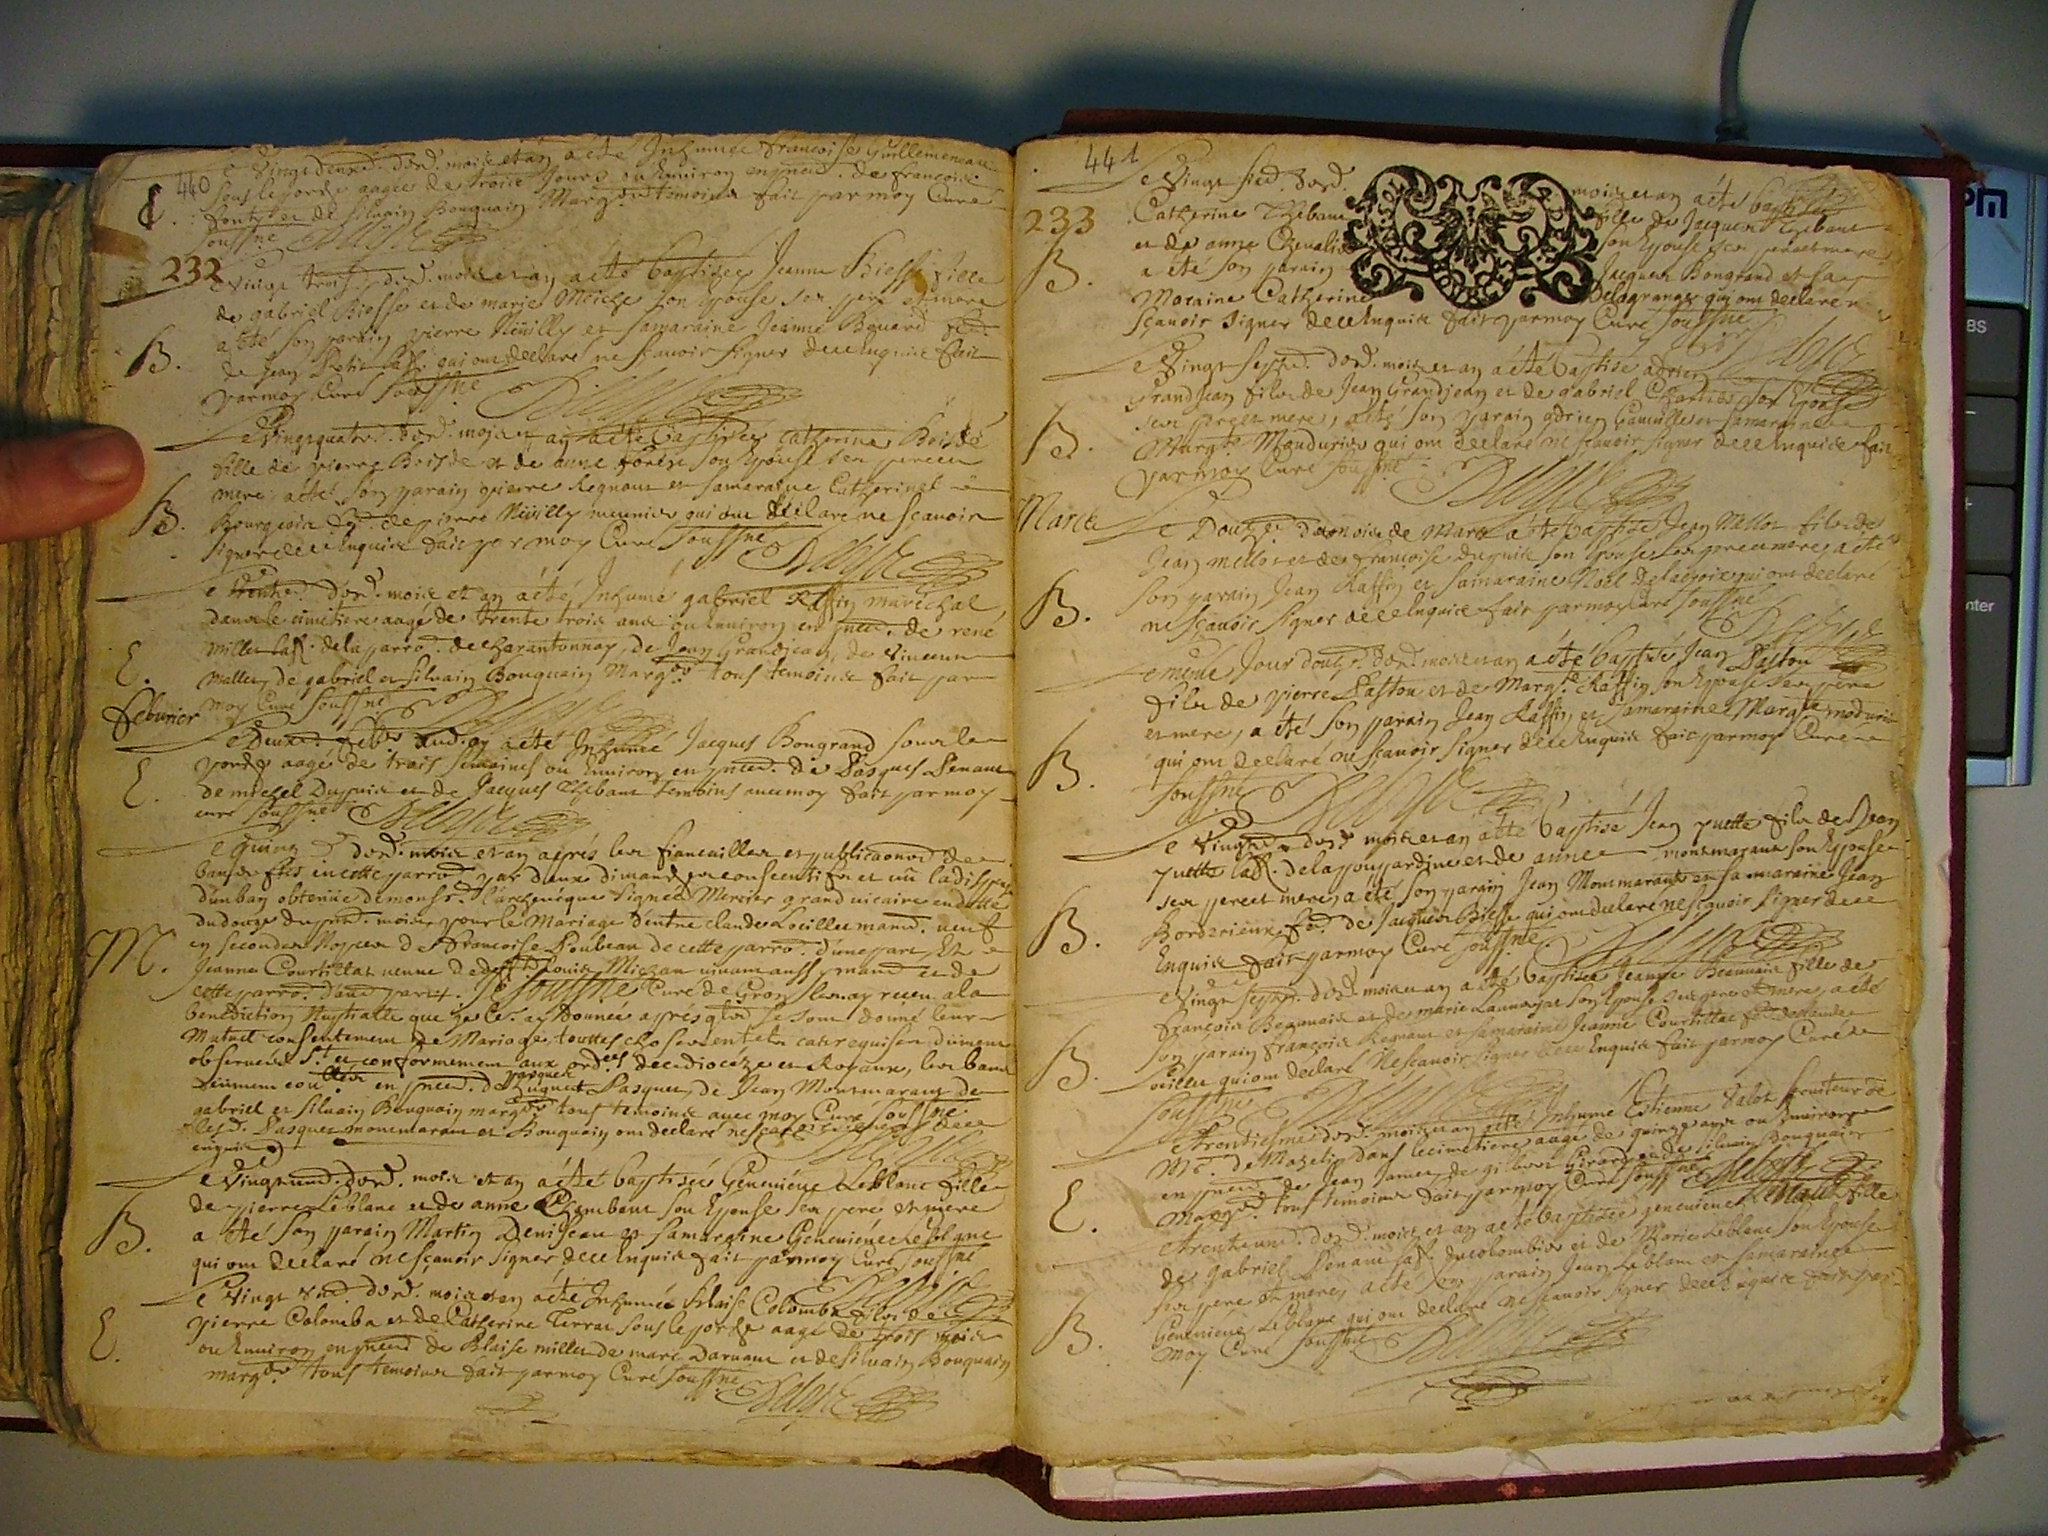 440
E.
e Vingt deuxe. dord. mois et an a été Inhumée francoise Guillemeneau
sous le porche aagée de trois jours ou Environ en pnce. de francois
et de silvain Bouquain Margrs. temoins fait par moy Curé
soussné
232
e Vingt trois. dord. mois et an a été baptisée Jeanne Biesse fille
de gabriel Biesse et de marie son Epouse ses pere et mere
a été son parain pierre Neüilly et samaraine Jeanne
B.
de Jean Petit qui ont declaré ne scavoir signer de ce Enquis fait
par moy Curé soussné
e Vingtquatre. dord. mois et an a été baptisée Catherine Boisdé
fille de pierre Boisdé et de anne son Epouse ses pere et
mere a été son parain pierre Regnaut et samaraine Catherine
B.
Bourgeois de pierre Neüilly meunier qui ont déclaré ne scavoir
signer de ce Enquis fait par moy Curé soussné
e trente. dord. mois et an a été Inhumé gabriel Raffin maréchal
dans le cimetiere aagé de trente trois ans ou Environ en pnce. de rené
E.
Millet lab. de la parro. de charantonnay, de Jean Grandjean, de Vincent
Mallet, de gabriel et silvain Bouquain Margrs. tous temoins fait par
moy Curé soussné
feburier
e Deuxe. feb. aud. an a été Inhumé Jacques Bongrand sous le
porche aagé de trois semaines ou Environ en pnce. de Pasques Penaut
E.
de michel Dupuis et de Jacques Thebaut temoins avec moy fait par moy
curé soussné
e quinz dord. mois et an aprés les fiancailles et publicaons de
bans ftes en cette parro. par deux dimanches consecutifs et vû la dispense
dun ban obtenüe de monsr. Larcheuéque signée Mercier grand vicaire en datte
du douze du pnt. mois, pour le Mariage d'entre claude Loeillet veuf
M.
en secondes Nopces de francoise Loubeau de cette parro. d'une part, Et
Jeanne Courtillat veuve de deffunt Louis Michau vivant aussy et de
cette parro. dautre part. Je soussné Curé de Gron
benediction Nuptialle que je leur ay Donnée apres qlsd se sont donné leur
Mutuel consentement de Mariage, touttes choses en tel cas requises düment
observées et conformement aux ord. de ce diocéze et Royaux, les bans
en pnce. de huguet Pasquet, de Jean Montmarant de
gabriel et silvain Bouquain margrs. tous temoins avec moy Curé soussné
lesd. Pasquet montmarant et Bouquain ont declaré ne scavoir signer de ce
enquis
e Vingt dord. mois et an a été baptisée Geneviéve Leblanc fille
de pierre Leblanc et de anne Chambaut son Epouse ses pere et mere
B.
a été son parain Martin Deniseau et samaraine Geneviéve Leblanc
qui ont declaré ne scavoir signer de ce Enquis fait par moy Curé soussné
e Vingt dord. mois et an a été Inhumé Blaise Colomba fils de
pierre Colomba et de Catherine Terrat sous le porche aagé de trois mois
E.
ou Environ en pnce de Blaise millet de marc Darnaut et de silvain Bouquain
margrs. tous temoins fait par moy Curé soussné
441
e Vingt six. dord. mois et an a été baptisée
233
Catherine Thebaut fille de Jacques Thebaut
et de anne Chevalier son Epouse ses pere et mere
B.
a été son parain Jacques Bongrand et sa
Maraine Catherine Delagrange qui ont declaré n
scavoir signer de ce Enquis fait par moy Curé soussné
e Vingt sept. dord. mois et an a été baptisé adrien
Grandjean fils de Jean Grandjean et de gabriel son Epouse
B.
ses pere et mere, a été son parain adrien et samaraine
Margte. Monduris qui ont declaré ne scavoir signer de ce Enquis fait
par moy Curé soussné
Mars
e Douze. du mois de Mars a été baptisé Jean Mellot fils de
Jean mellot et de francoise dupuis son Epouse ses pere et mere, a été
B.
son parain Jean Raffin et samaraine Noël Delacroix qui ont declaré
ne scavoir signer de ce Enquis fait par moy Curé soussné
e même Jour douze. dord. mois et an a été baptisé Jean Paston
fils de pierre Paston et de Margte. Raffin son Epouse ses pere
et mere, a été son parain Jean Raffin et samaraine Margte moduris
B.
qui ont declaré ne scavoir signer de ce Enquis fait par moy Curé
soussné
e Vingt dord mois et an a été baptisé Jean yvette fils de Jean
yvette lab. de la poupardine et de anne montmarant son Epouse
ses pere et mere, a été son parain Jean Montmarant et sa maraine Jean
B.
Borderieux fe. de Jacques Biesse qui ont declaré ne scavoir signer de ce
Enquis fait par moy Curé soussné.
e Vingt sept. dord. mois et an a été baptisée Jeanne Beauvais fille de
francois Beauvais et de marie son Epouse ses pere et mere, a été
B.
son parain francois Regnaut et samaraine Jeanne Courtillat fe. de claude
Loeillet qui ont declaré Ne scavoir signer de ce Enquis fait par moy Curé
soussné
e trentiesme dord. mois et an a été Inhumé Estienne Valot serviteur de
Me. de Mazelin dans le cimetiere aagé de quinze ans ou Environ
E.
en pnce de Jean Jamet, de gilbert Girard et de silvain Bouquain
Margr. tous temoins fait par moy Curé soussné
e trenteun. dord. mois et an a été baptisée genevieve fille
de gabriel Penaut lab. du colombier et de Marie Leblanc son Epouse
ses pere et mere, a été son parain Jean Leblanc et samaraine
B.
Genevieve Leblanc qui ont declaré ne scavoir signer de ce Enquis fait par
moy Curé soussné